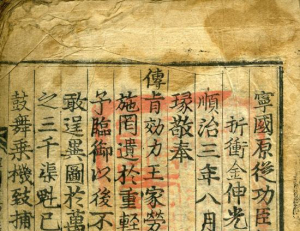 寧國原從功臣
折衝金伸光
順治三年八月
瑑敬奉
傳旨效力王家勞
施罔遺於重輕
子臨御以後不
敢逞異圖於萬
之三千渠魁已
鼓舞乗機致捕